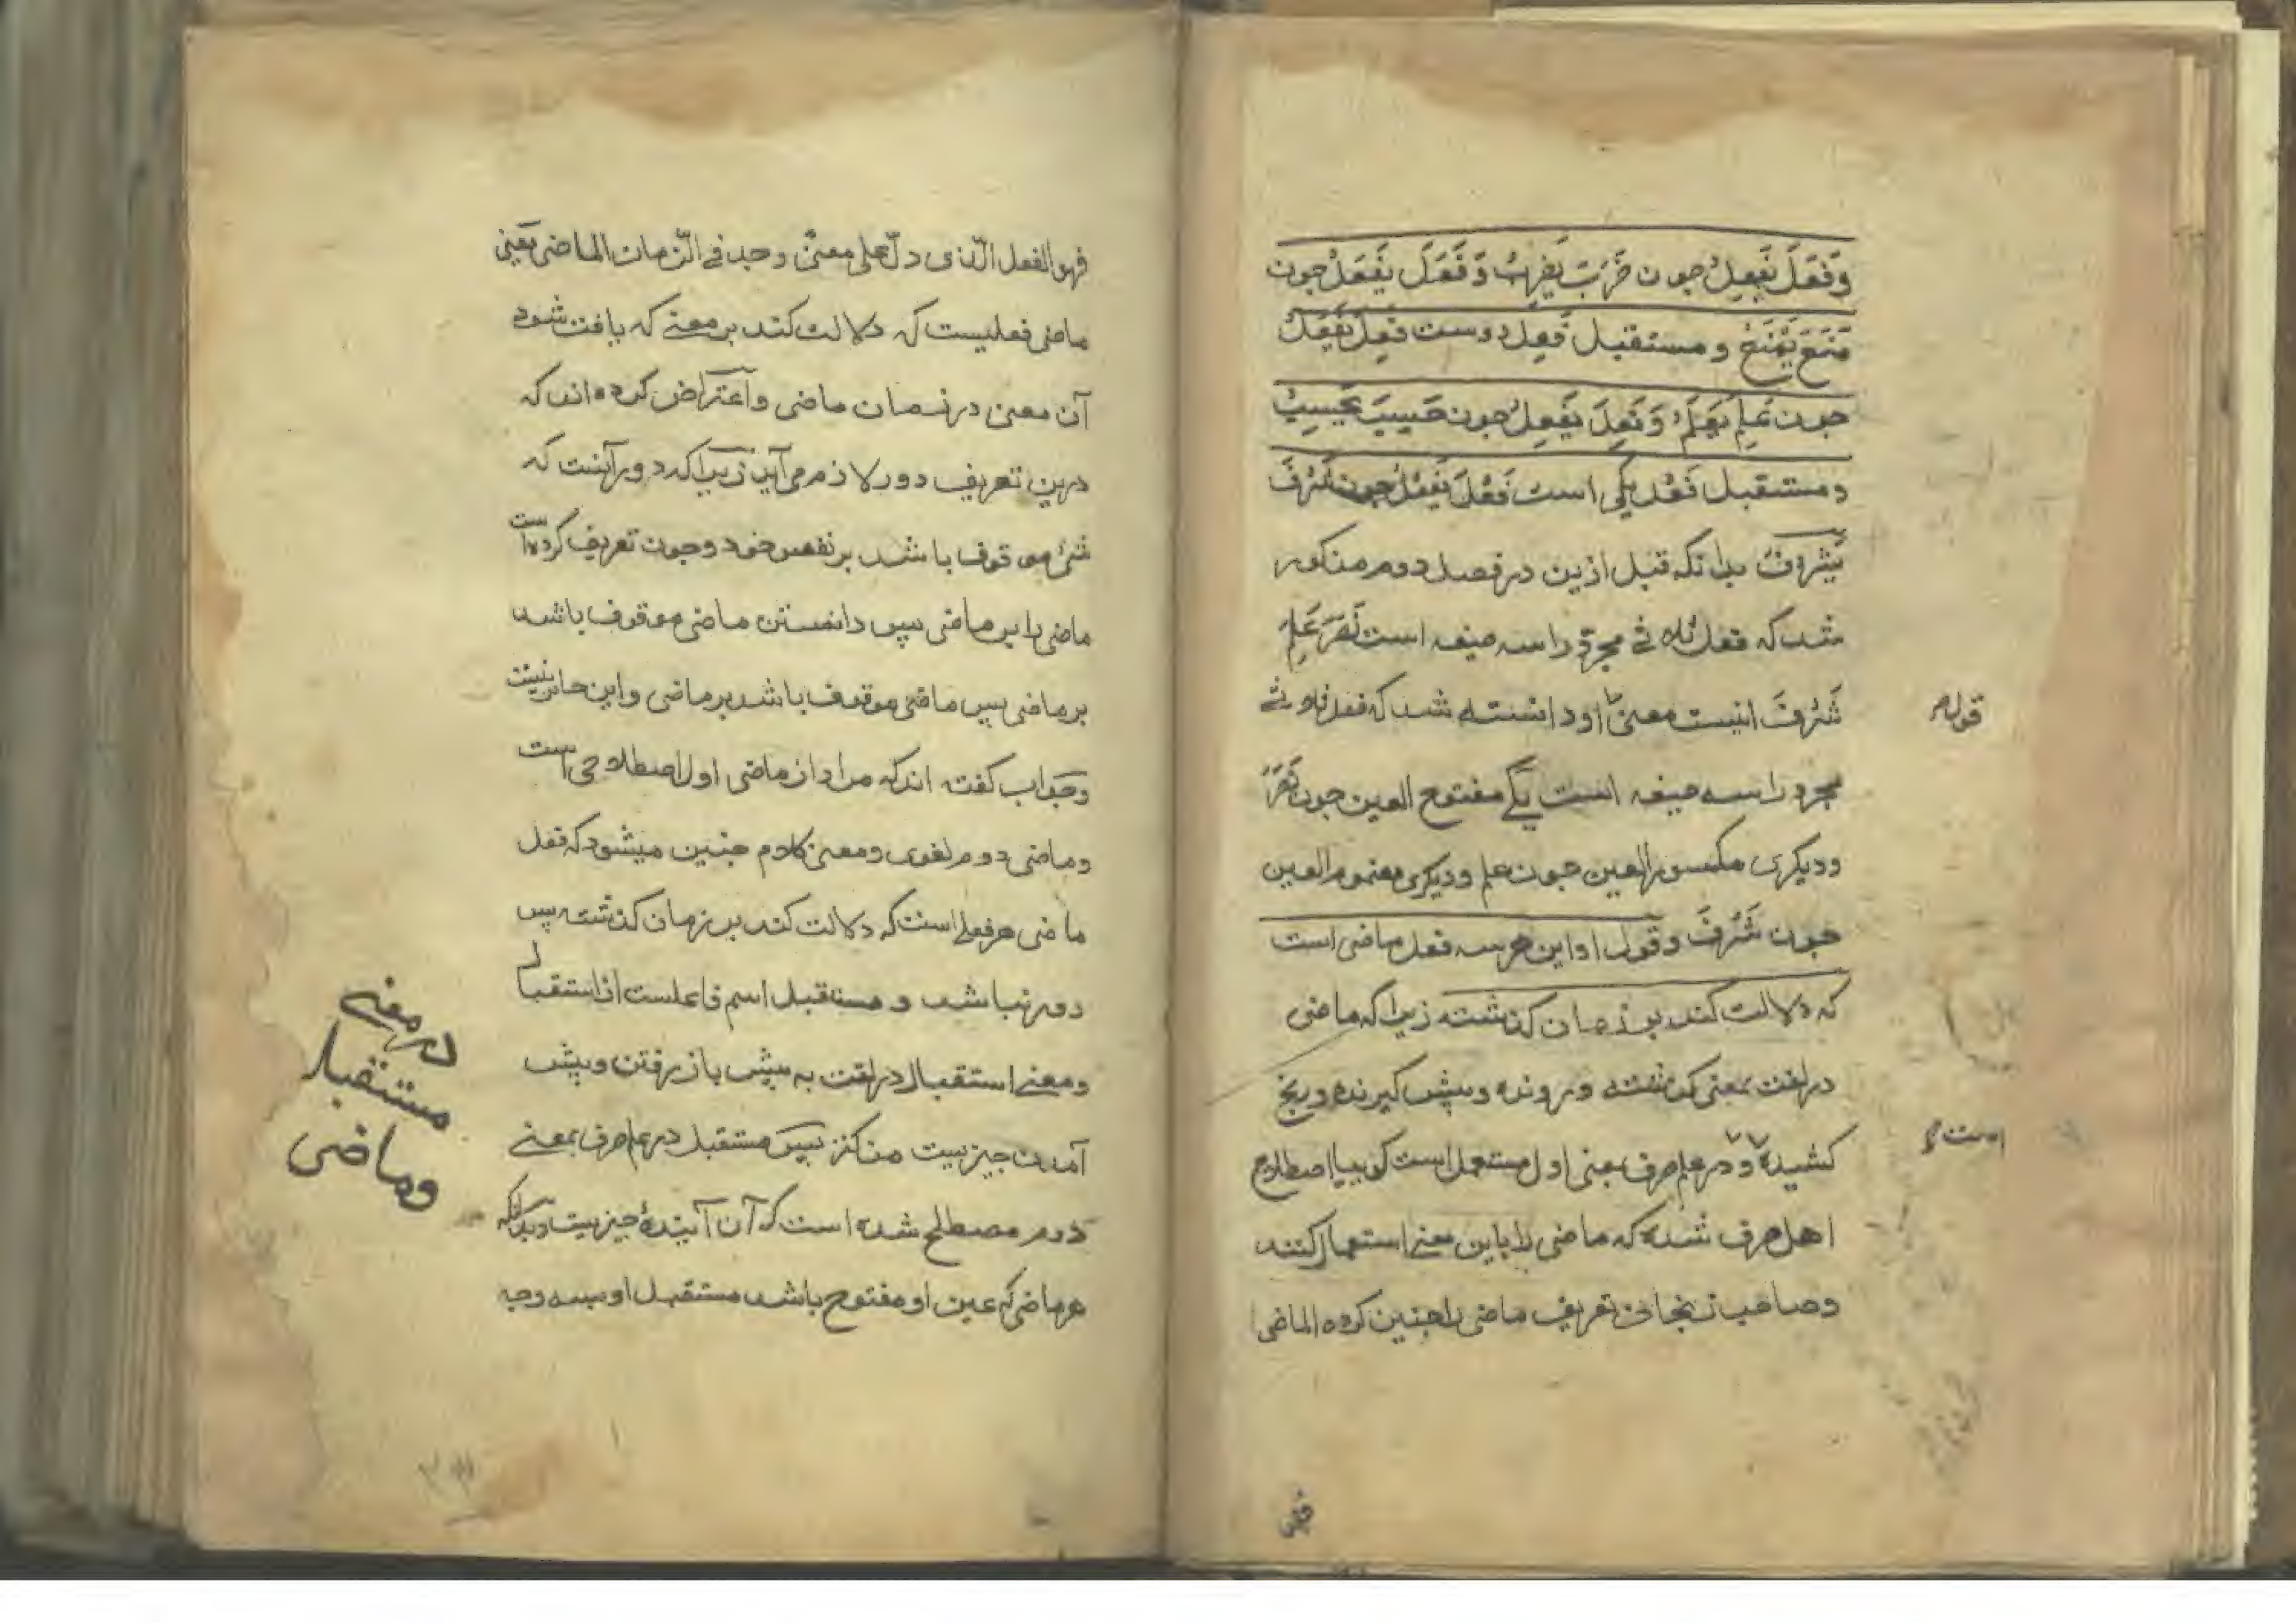 وَفَعَلَ يَفْعِلُ جون ضَرَبَ يَضْرِبُ وَفَعَلَ يَفْعَلُ جون
مَنَعَ يَمْنَعُ و مستقبل فَعِلَ دوست فَعِلَ يَفْعَلُ
جون عَلِمَ يَعْلَمُ وَ فَعِلَ يَفْعِلُ جون حَسِبَ يَحْسِبُ
و مستقبل فَعُلَ یکی است فَعُلَ يَفْعُلُ جون شَرُفَ
يَشْرُفُ بدانکه قبل ازین در فصل دوم مذکور
شد که فعل ثلاثی مجرد را سه صیغه است نَصَرَ عَلِمَ
شَرُفَ اینست معنی او دانسته شد که فعل ثلاثی
قوله
مجرد را سه صیغه است یکی مفتوح العین جون نَصَرَ
ودیکری مکسور العین جون علم ودیکری مضموم العین
جون شَرُفَ وقول او این هر سه فعل ماضی است
که دلالت کند بر زمان کذشته زیرا که ماضی
در لغت بمعنی کذشته و رونده وپیش کیرنده و
است
کشیده و در علم صرف بمعنی اول مستعمل است کوییا اصطلاح
اهل صرف شده که ماضی را باین معنی استعمال کنند
وصاحب زنجانی تعریف ماضی را جنین کرده الماضی
فهو
فهو الفعل الّذی دلّ علی معنیً وجد فی الزّمان الماضی یَعنی
ماضی فعلیست که دلالت کند بر معنی که یافت شود
آن معنی در زمان ماضی و اعتراض کرده اند که
درین تعریف دور لازم می آید زیرا که دور آنست که
شئ موقوف باشد بر نفس خود وجون تعریف کرده است
ماضی را بر ماضی پس دانستن ماضی موقوف باشد
بر ماضی پس ماضی موقوف باشد بر ماضی واین جایز نیست
وجواب کفته اند که مراد از ماضی اول اصطلاحی است
وماضی دوم لغوی ومعنی کلام جنین میشود که فعل
ماضی هر فعلی است که دلالت کند بر زمان کذشته پس
دور نباشد و مستقبل اسم فاعلست از استقبال
ومعنی استقبال در لغت به پیش باز رفتن وپیش
آمدن جیزیست مذکز پس مستقبل در علم صرف بمعنی
دوم مصطلح شده است که آن آیندهٔ جیزیست وبدانکه
هر ماضی که عین او مفتوح باشد مستقبل او بسه وجه
در معنی
مستقبل
وماضی